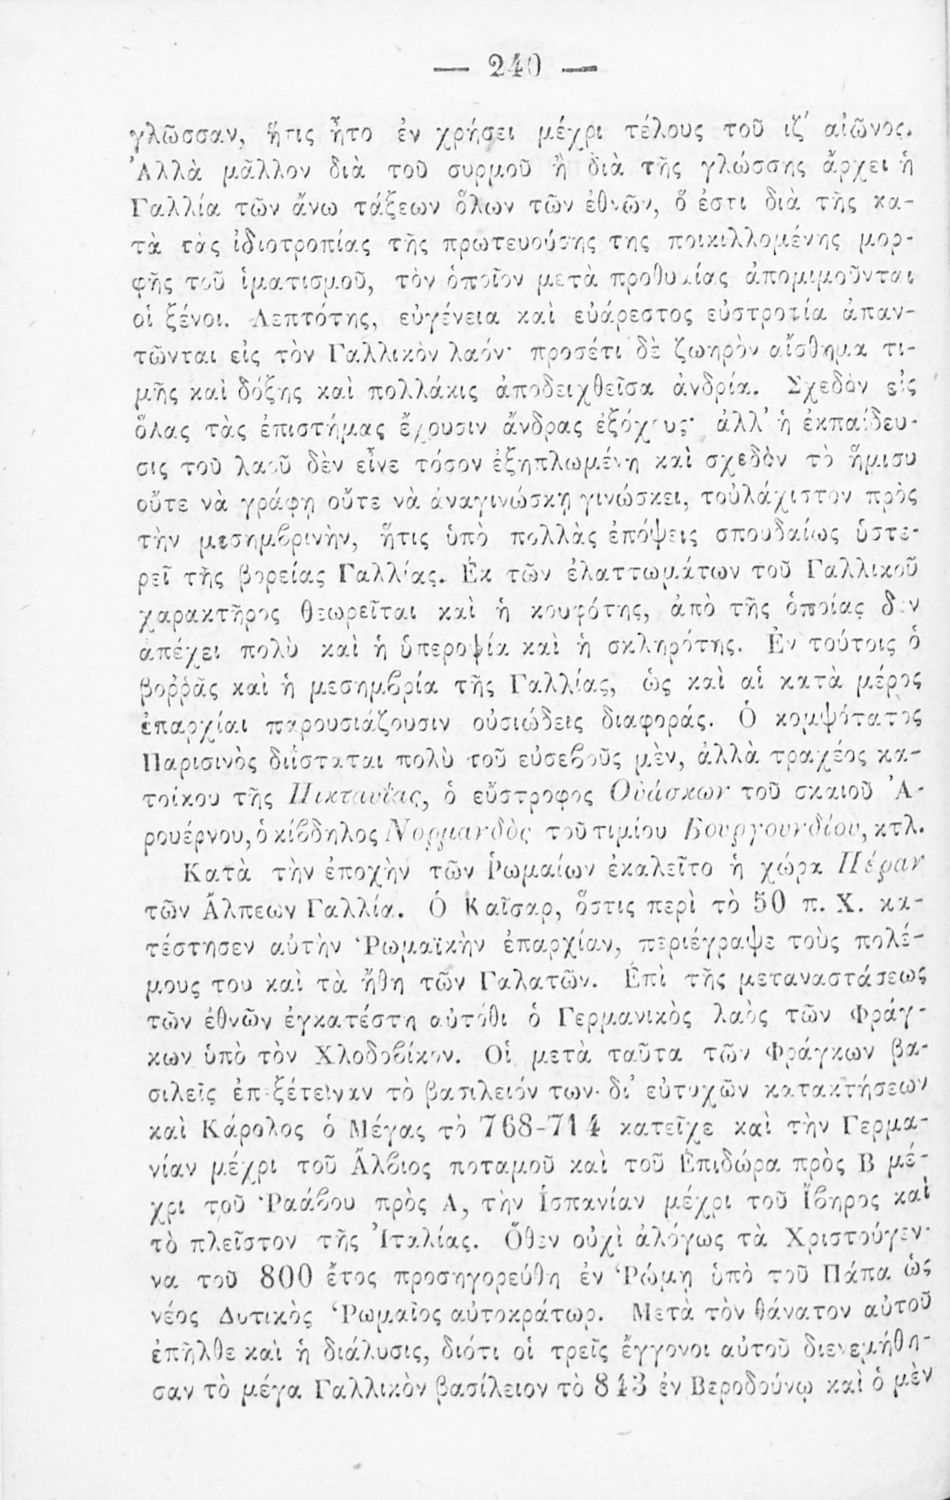 — 240 —
γλῶσσαν, ἥτις ἦτο ἐν χρήσει μέχρι τέλους τοῦ ιζ΄ αἰῶνος.
Ἀλλὰ μᾶλλον διὰ τοῦ συρμοῦ ἢ διὰ τῆς γλώσσης ἄρχει ἡ
Γαλλία τῶν ἄνω τάξεων ὅλων τῶν ἐθνῶν, ὅ ἐστι διὰ τῆς κα-
τὰ τὰς ἰδιοτροπίας τῆς πρωτευούσης της ποικιλλομένης μορ-
φῆς τοῦ ἱματισμοῦ, τὸν ὁποῖον μετὰ προθυμίας ἀπομιμοῦνται
οἱ ξένοι. Λεπτότης, εὐγένεια καὶ εὐάρεστος εὐστροφία ἀπαν-
τῶνται εἰς τὸν Γαλλικὸν λαόν· προσέτι δὲ ζωηρὸν αἴσθημα τι-
μῆς καὶ δόξης καὶ πολλάκις ἀποδειχθεῖσα ἀνδρία. Σχεδὸν εἰς
ὅλας τὰς ἐπιστήμας ἔχουσιν ἄνδρας ἐξόχους· ἀλλ' ἡ ἐκπαίδευ-
σις τοῦ λαοῦ δὲν εἶνε τόσον ἐξηπλωμένη καὶ σχεδὸν τὸ ἥμισυ
οὔτε νὰ γράφῃ οὔτε νὰ ἀναγινώσκῃ γινώσκει, τοὐλάχιστον πρὸς
τὴν μεσημβρινὴν, ἥτις ὑπὸ πολλὰς ἐπόψεις σπουδαίως ὑστε-
ρεῖ τῆς βορείας Γαλλίας. Ἐκ τῶν ἐλαττωμάτων τοῦ Γαλλικοῦ
χαρακτῆρος θεωρεῖται καὶ ἡ κουφότης, ἀπὸ τῆς ὁποίας δὲν
ἀπέχει πολὺ καὶ ἡ ὑπεροψία καὶ ἡ σκληρότης. Ἐν τούτοις ὁ
βοῤῥᾶς καὶ ἡ μεσημβρία τῆς Γαλλίας, ὡς καὶ αἱ κατὰ μέρος
ἐπαρχίαι παρουσιάζουσιν οὐσιώδεις διαφοράς. Ὁ κομψότατος
Παρισινὸς διΐσταται πολὺ τοῦ εὐσεβοῦς μὲν, ἀλλὰ τραχέος κα-
τοίκου τῆς Πικταυΐας, ὁ εὔστροφος Οὐάσκων τοῦ σκαιοῦ Ἀ-
ρουέρνου, ὁ κίβδηλος Νορμανδὸς τοῦ τιμίου Βουργουνδίου, κτλ.
Κατὰ τὴν ἐποχὴν τῶν Ῥωμαίων ἐκαλεῖτο ἡ χώρα Πέραν
τῶν Ἄλπεων Γαλλία. Ὁ Καῖσαρ, ὅστις περὶ τὸ 50 π. Χ. κα-
τέστησεν αὐτὴν Ῥωμαϊκὴν ἐπαρχίαν, περιέγραψε τοὺς πολέ-
μους του καὶ τὰ ἤθη τῶν Γαλατῶν. Ἐπὶ τῆς μεταναστάσεως
τῶν ἐθνῶν ἐγκατέστη αὐτόθι ὁ Γερμανικὸς λαὸς τῶν Φράγ-
κων ὑπὸ τὸν Χλοδοβίκον. Οἱ μετὰ ταῦτα τῶν Φράγκων βα-
σιλεῖς ἐπεξέτειναν τὸ βασίλειόν των δι' εὐτυχῶν κατακτήσεων
καὶ Κάρολος ὁ Μέγας τὸ 768-714 κατεῖχε καὶ τὴν Γερμα-
νίαν μέχρι τοῦ Ἄλβιος ποταμοῦ καὶ τοῦ Ἐπιδώρα πρὸς Β μέ-
χρι τοῦ Ῥαάβου πρὸς Α, τὴν Ἱσπανίαν μέχρι τοῦ Ἴβηρος καὶ
τὸ πλεῖστον τῆς Ἰταλίας. Ὅθεν οὐχὶ ἀλόγως τὰ Χριστούγεν-
να τοῦ 800 ἔτος προσηγορεύθη ἐν Ῥώμῃ ὑπὸ τοῦ Πάπα ὡς
νέος Δυτικὸς Ῥωμαῖος αὐτοκράτωρ. Μετὰ τὸν θάνατον αὐτοῦ
ἐπῆλθε καὶ ἡ διάλυσις, διότι οἱ τρεῖς ἔγγονοι αὐτοῦ διενεμήθη-
σαν τὸ μέγα Γαλλικὸν βασίλειον τὸ 843 ἐν Βεροδούνῳ καὶ ὁ μὲν